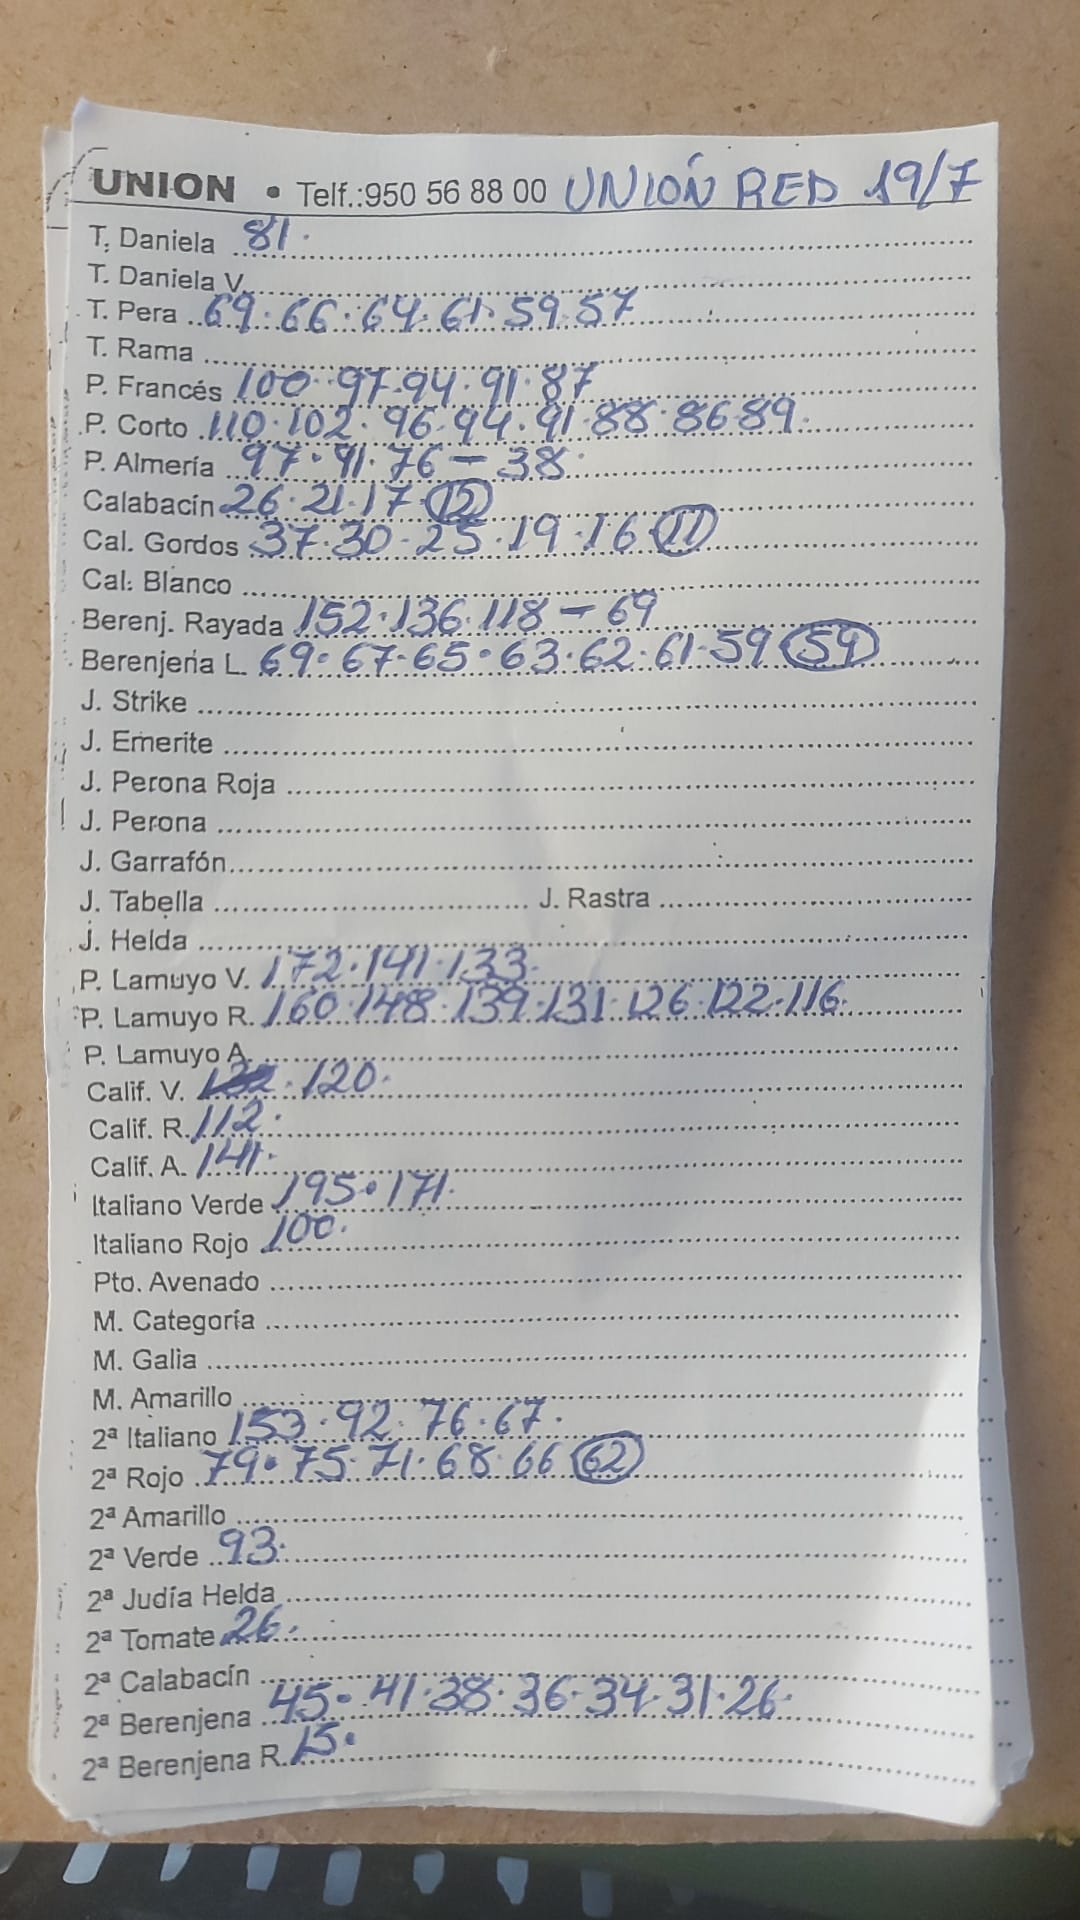 UNION • Telf.:950 56 88 00 UNIÓN RED 19/7
T. Daniela 81.
T. Daniela V.
T. Pera 69.66.64.61.59.57
T. Rama
P. Francés 100.97.94.91.87
P. Corto 110.102.96.94.91.88.86.89.
P. Almería 97.91.76-38.
Calabacín 26.21.17.12
Cal. Gordos 37.30.25.19.16.11
Cal. Blanco
Berenj. Rayada 152.136.118-69
Berenjena L. 69.67.65.63.62.61.59 59
J. Strike
J. Emerite
J. Perona Roja
J. Perona
J. Garrafón
J. Tabella J. Rastra
J. Helda
P. Lamuyo V. 172.141.133.
P. Lamuyo R. 160.148.139.131.126.122.116.
P. Lamuyo A.
Calif. V. 120.
Calif. R. 112.
Calif. A. 141.
Italiano Verde 195.171.
Italiano Rojo 100.
Pto. Avenado
M. Categoría
M. Galia
M. Amarillo
2ª Italiano 153.92.76.67.
2ª Rojo 79.75.71.68.66 62
2ª Amarillo
2ª Verde 93.
2ª Judía Helda
2ª Tomate 26.
2ª Calabacín
2ª Berenjena 45.41.38.36.34.31.26.
2ª Berenjena R. 15.